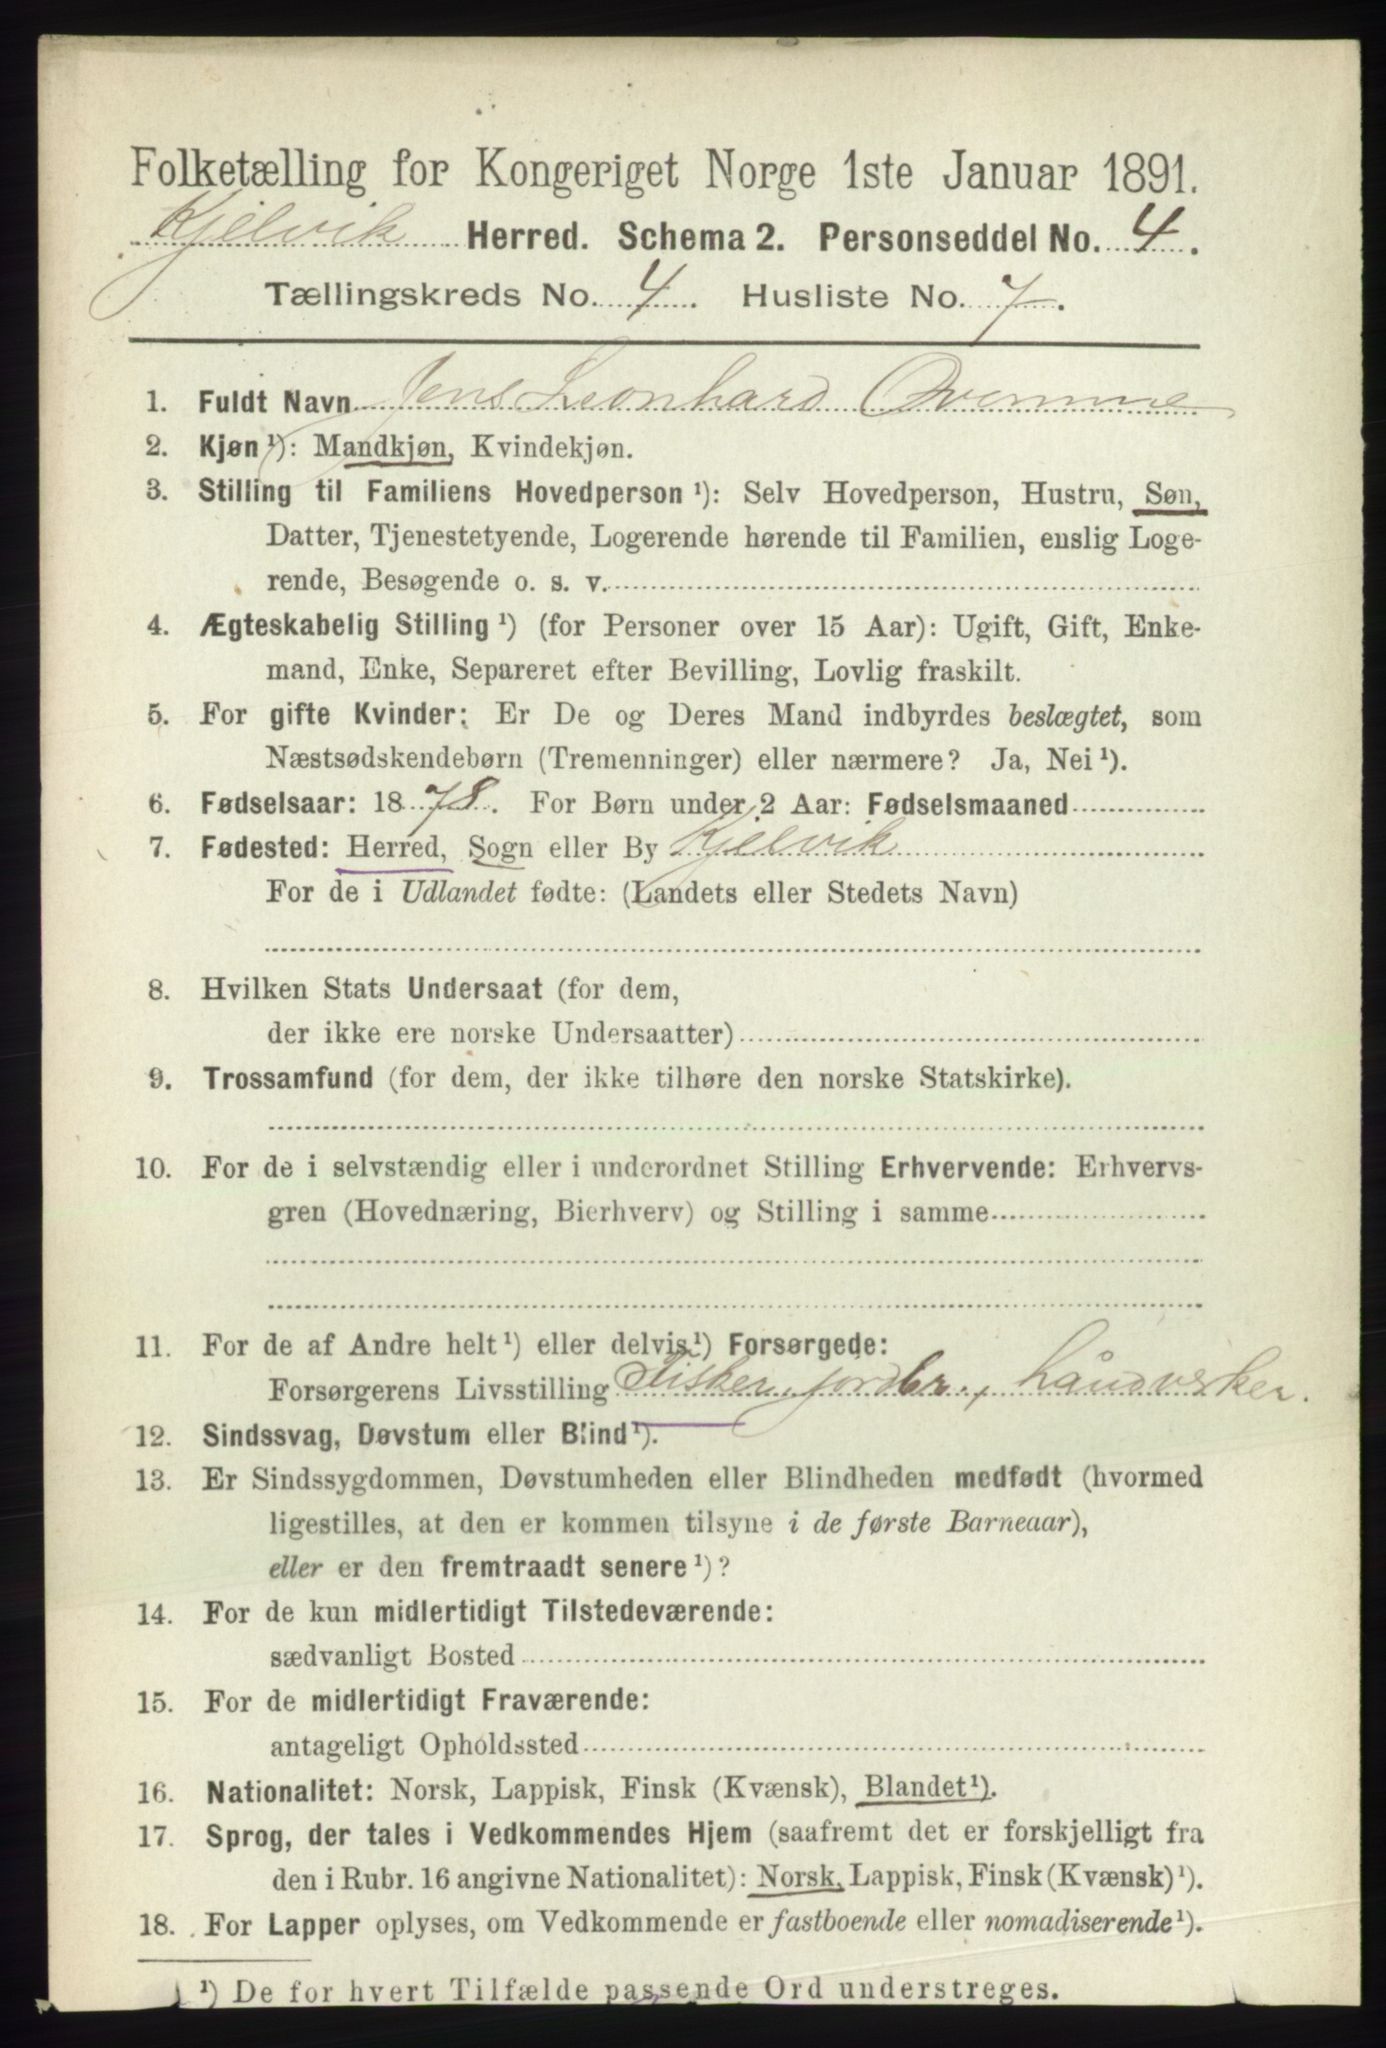 Folketælling for Kongeriget Norge 1ste Januar 1891.
Kjelvik Herred. Schema 2. Personseddel No. 4.
Tællingskreds No. 4. Husliste No. 7.
1. Fuldt Navn Jens Leonhard
2. Kjøn ¹): Mandkjøn, Kvindekjøn.
3. Stilling til Familiens Hovedperson ¹): Selv Hovedperson, Hustru, Søn,
Datter, Tjenestetyende, Logerende hørende til Familien, enslig Loge-
rende, Besøgende o. s. v.
4. Ægteskabelig Stilling ¹) (for Personer over 15 Aar): Ugift, Gift, Enke-
mand, Enke, Separeret efter Bevilling, Lovlig fraskilt.
5. For gifte Kvinder: Er De og Deres Mand indbyrdes beslægtet, som
Næstsødskendebørn (Tremenninger) eller nærmere? Ja, Nei ¹).
6. Fødselsaar: 1878. For Børn under 2 Aar: Fødselsmaaned
7. Fødested: Herred, Sogn eller By Kjelvik
For de i Udlandet fødte: (Landets eller Stedets Navn)
8. Hvilken Stats Undersaat (for dem,
der ikke ere norske Undersaatter)
9. Trossamfund (for dem, der ikke tilhøre den norske Statskirke).
10. For de i selvstændig eller i underordnet Stilling Erhvervende: Erhvervs-
gren (Hovednæring, Bierhverv) og Stilling i samme
11. For de af Andre helt ¹) eller delvis ¹) Forsørgede:
Forsørgerens Livsstilling Fisker, jordbr., håndverker.
12. Sindssvag, Døvstum eller Blind ¹).
13. Er Sindssygdommen, Døvstumheden eller Blindheden medfødt (hvormed
ligestilles, at den er kommen tilsyne i de første Barneaar),
eller er den fremtraadt senere ¹)?
14. For de kun midlertidigt Tilstedeværende:
sædvanligt Bosted
15. For de midlertidigt Fraværende:
antageligt Opholdssted
16. Nationalitet: Norsk, Lappisk, Finsk (Kvænsk), Blandet ¹).
17. Sprog, der tales i Vedkommendes Hjem (saafremt det er forskjelligt fra
den i Rubr. 16 angivne Nationalitet): Norsk, Lappisk, Finsk (Kvænsk) ¹).
18. For Lapper oplyses, om Vedkommende er fastboende eller nomadiserende ¹).
¹) De for hvert Tilfælde passende Ord understreges.